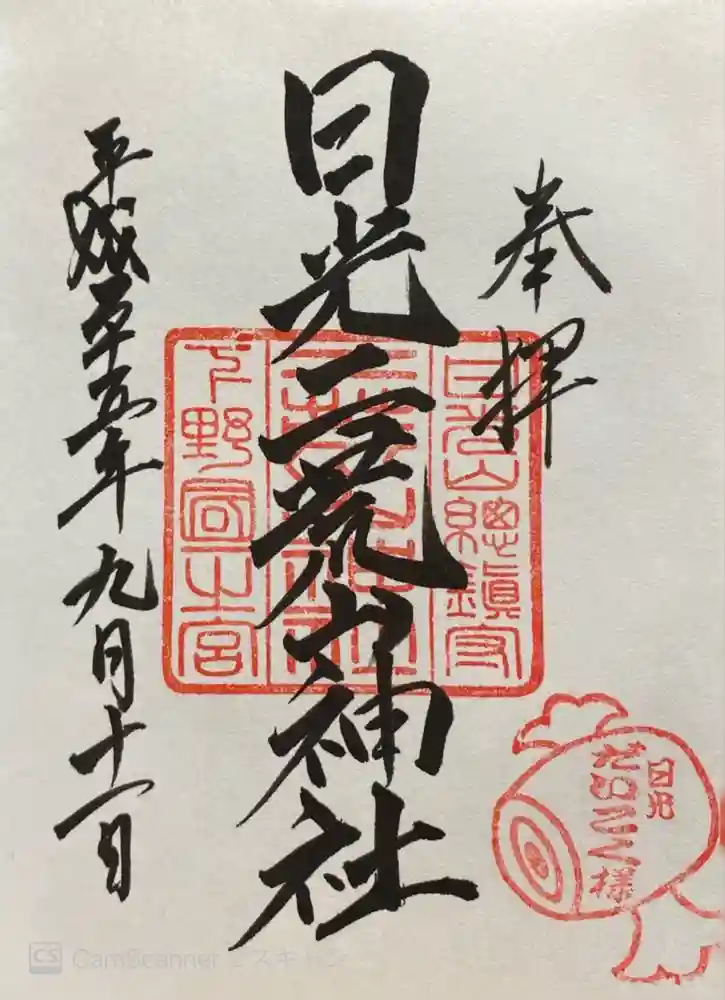 奉拝
日光二荒山神社
平成二十五年九月十一日
日光山總鎮守
二荒山神社
下野國一之宮
日光
だいこく様
CS CamScanner でスキャン